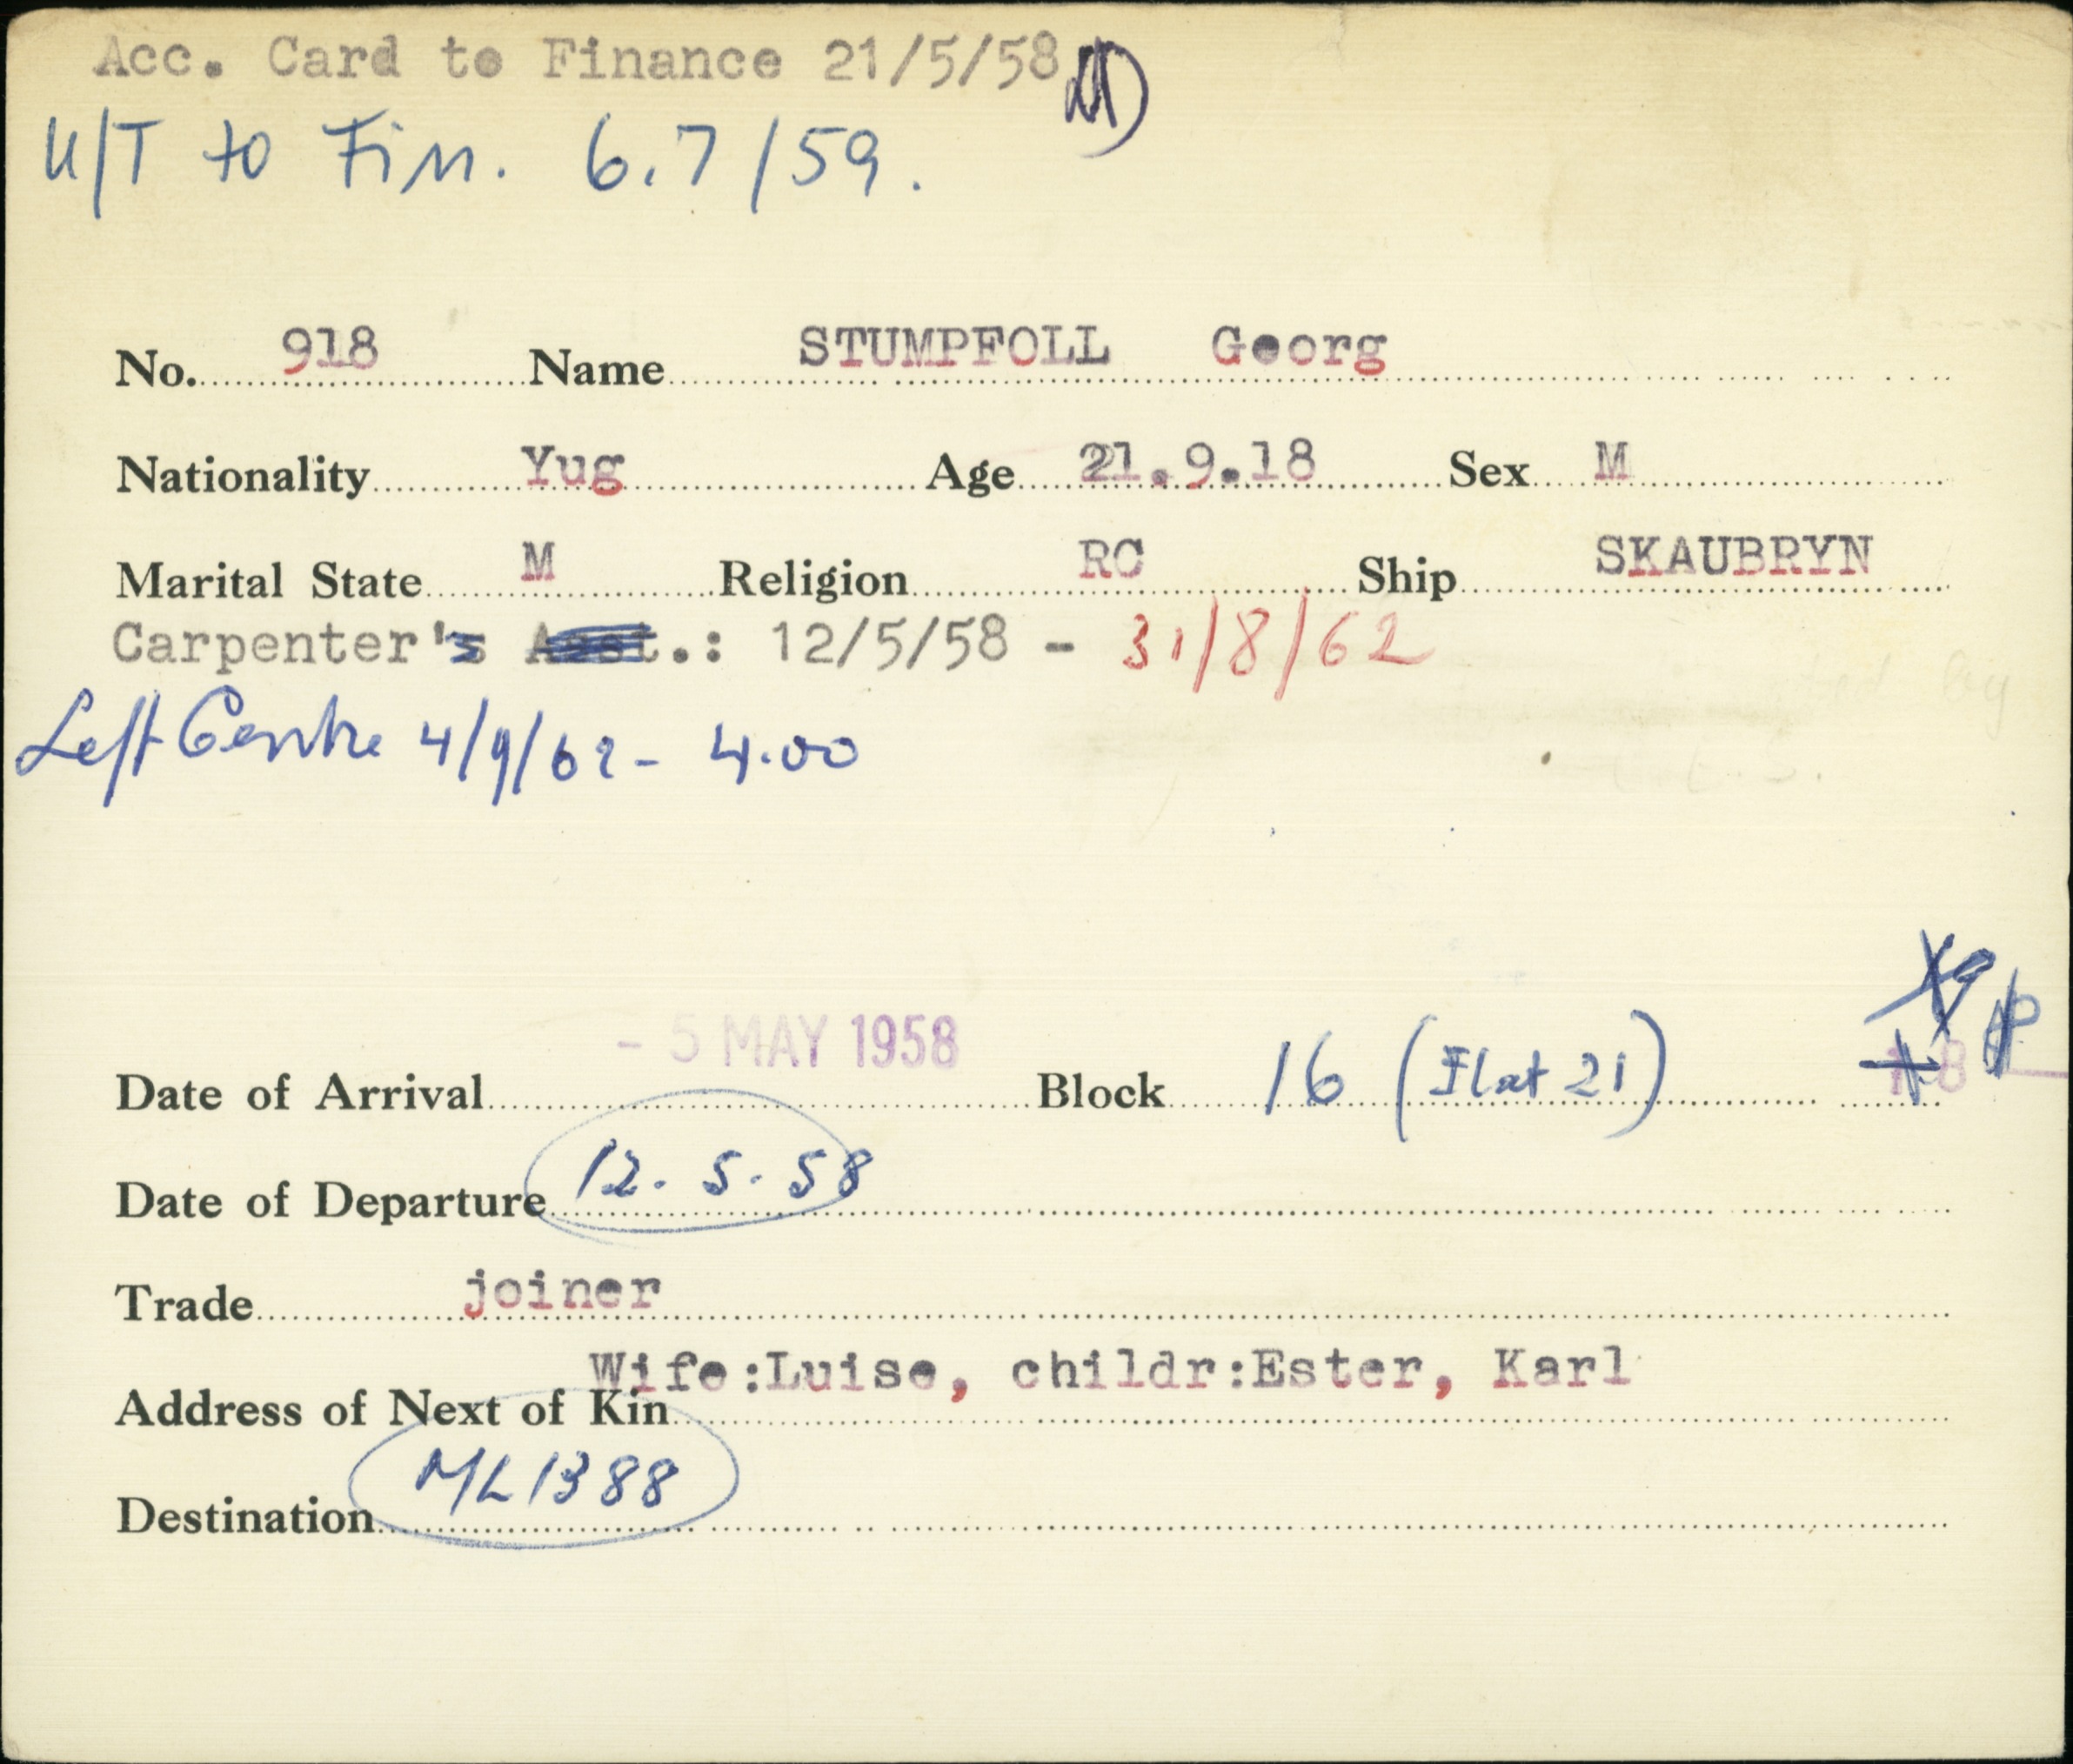 Acc. Card to Finance 21/5/58
U/T to Fin. 6.7/59.
No. 918 Name STUMPFOLL Georg
Nationality Yug Age 21.9.18 Sex M
Marital State M Religion RC Ship SKAUBRYN
Carpenter's Asst.: 12/5/58 - 31/8/62
Left Centre 4/9/62 - 4.00
- 5 MAY 1958
Date of Arrival Block 16 (Flat 21)
Date of Departure 12. 5. 58
Trade joiner
Wife:Luise, childr:Ester, Karl
Address of Next of Kin
Destination ML1388